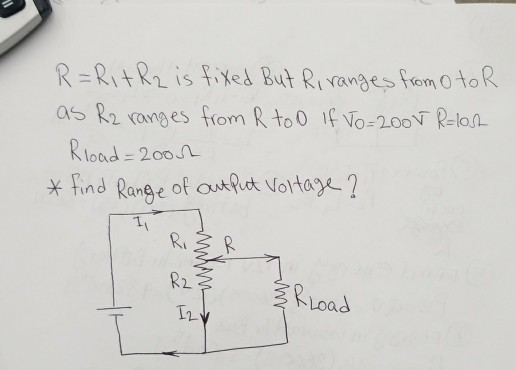 R = R1 + R2 is fixed But R1 ranges from 0 to R
as R2 ranges from R to 0 If V0=200V R=10Ω
Rload = 200Ω
* find Range of output voltage?
I1
R1 R
R2
I2 RLoad